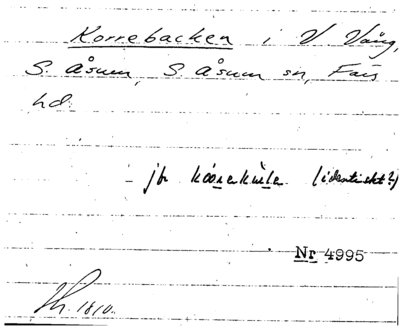 Korrebacken i V Vång,
S. Åsum, S Åsum sn, Färs
hd.
– jfr kåårekulla (identiskt?)
Nr 4995
1810.